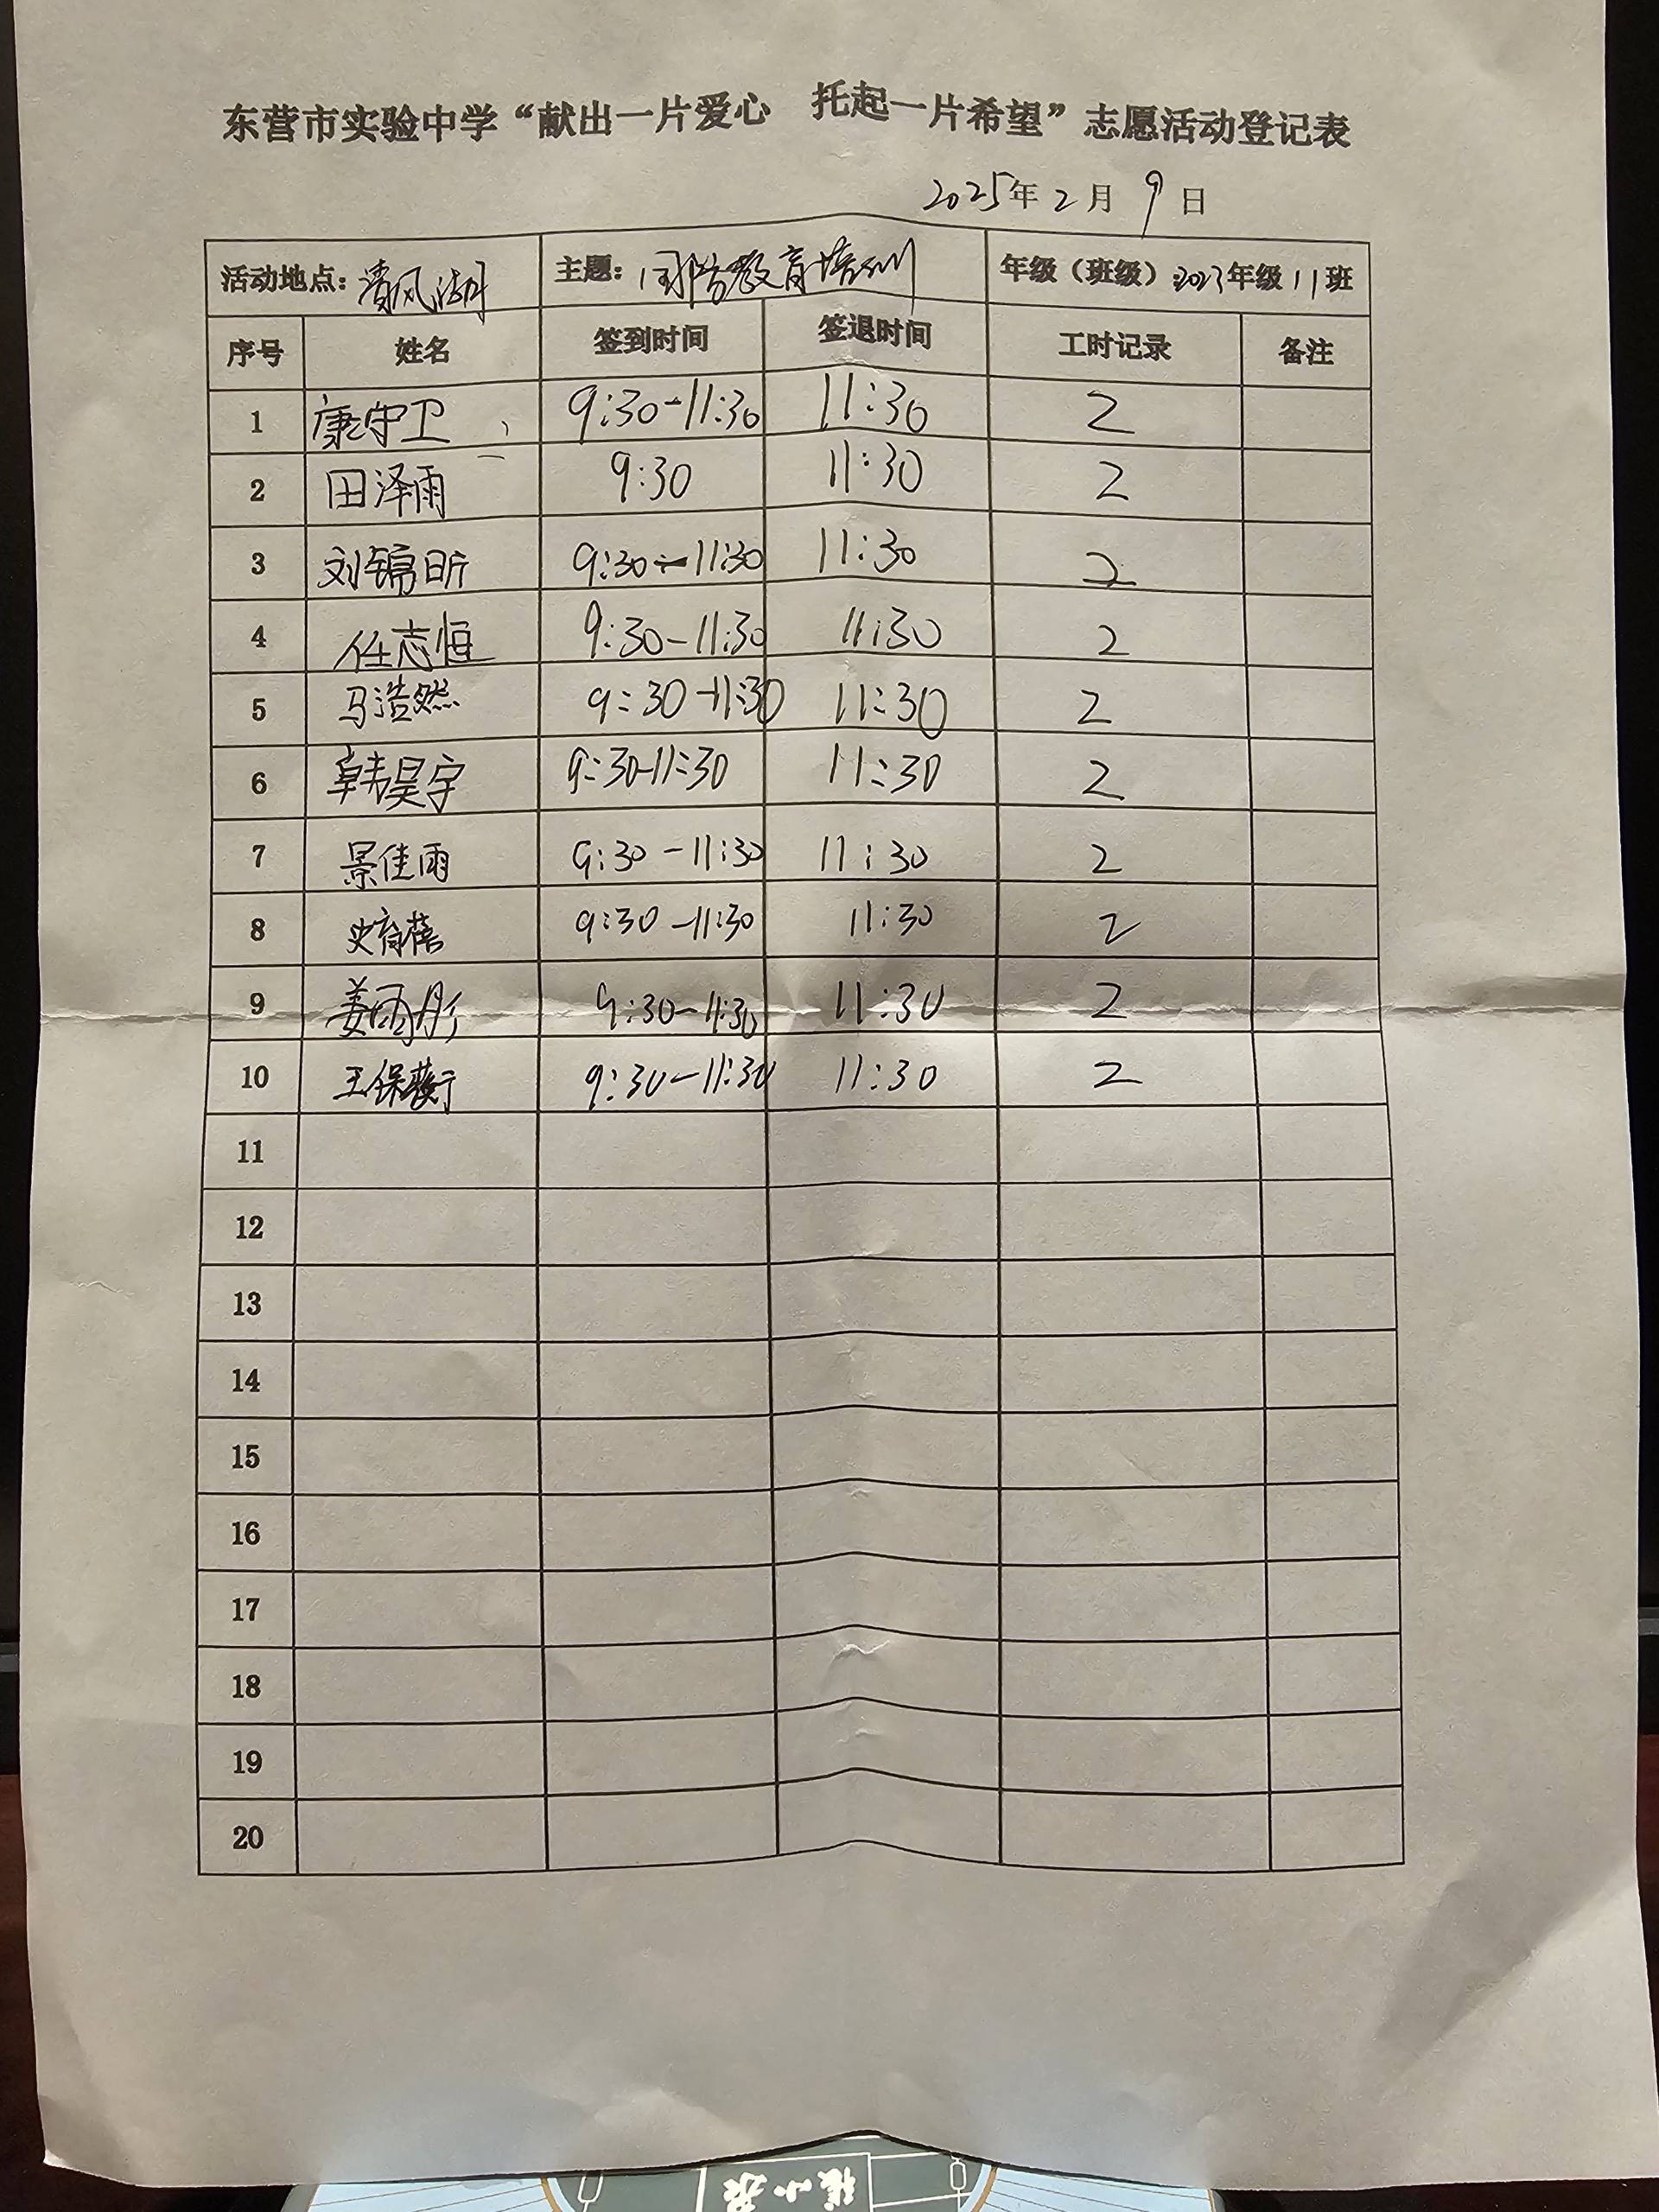 东营市实验中学“献出一片爱心 托起一片希望”志愿活动登记表
2025年 2 月 9 日
活动地点：清风湖 主题：国防教育培训 年级（班级）：2023年级 11班
序号 姓名 签到时间 签退时间 工时记录 备注
1 康守卫 9:30-11:30 11:30 2
2 田泽雨 9:30 11:30 2
3 刘锦昕 9:30-11:30 11:30 2
4 任志恒 9:30-11:30 11:30 2
5 马浩然 9:30-11:30 11:30 2
6 韩昊宇 9:30-11:30 11:30 2
7 景佳雨 9:30-11:30 11:30 2
8 史育 9:30-11:30 11:30 2
9 姜雨彤 9:30-11:30 11:30 2
10 王保衡 9:30-11:30 11:30 2
11
12
13
14
15
16
17
18
19
20